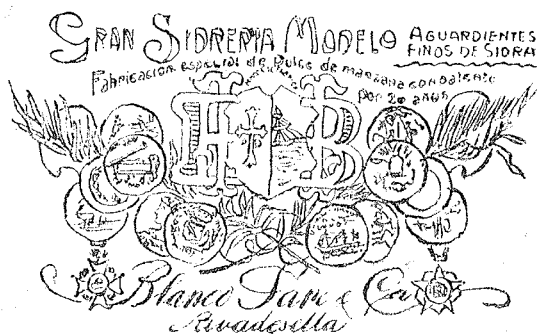 GRAN SIDRERIA MODELO
AGUARDIENTES
FINOS DE SIDRA
Fabricacion especial de Dulce de manzana con patente
por 20 años
B
Blanco
Rivadesella